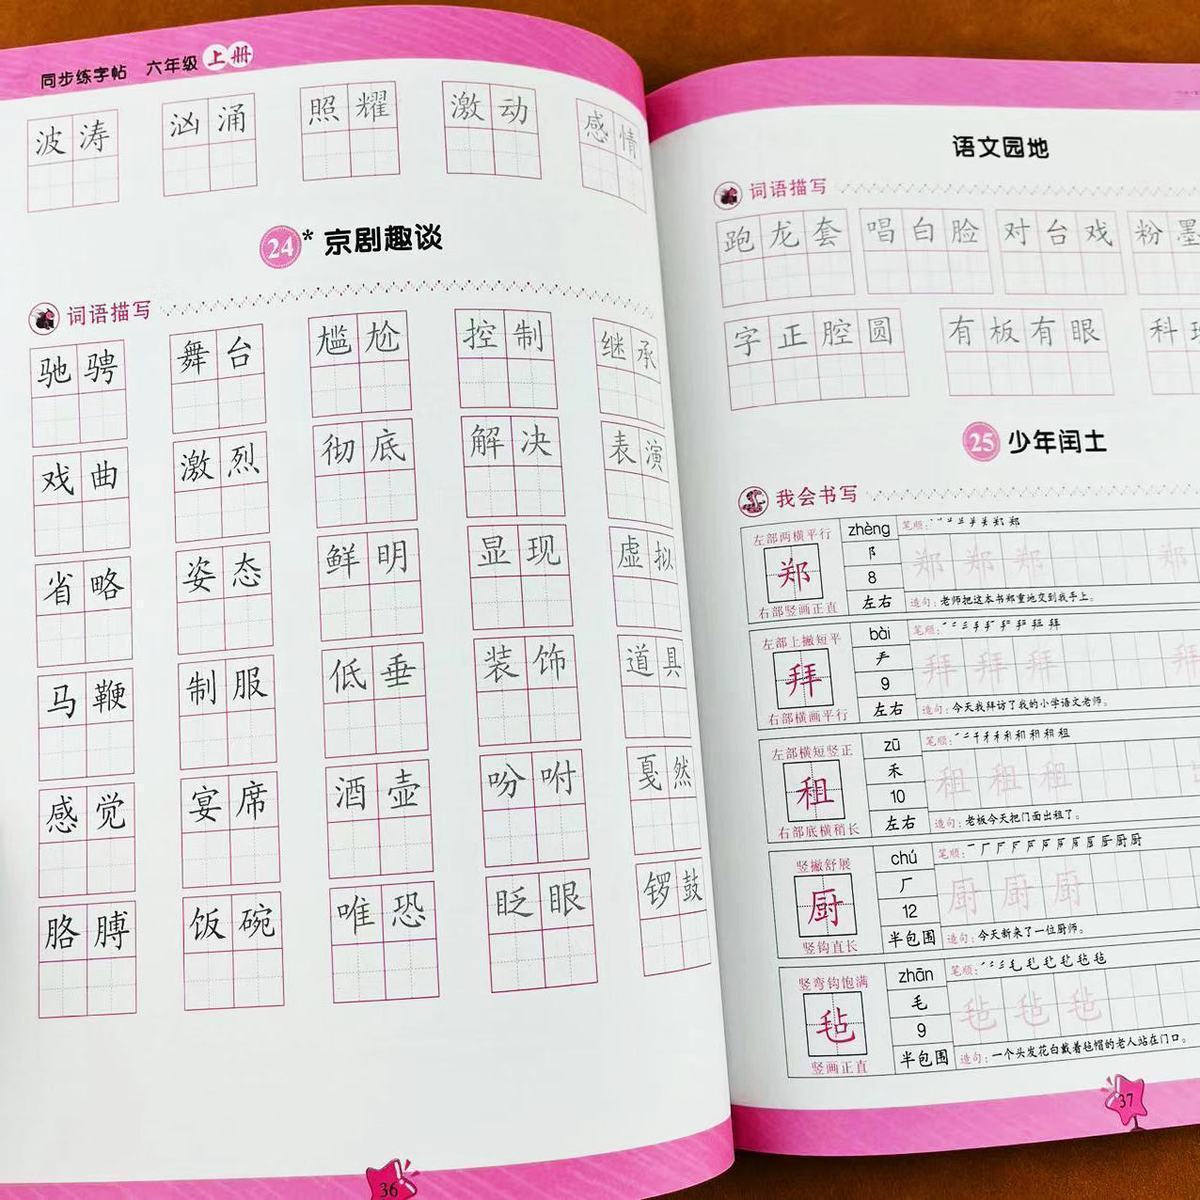 同步练字帖 六年级 上册
波涛 汹涌 照耀 激动 感情
24* 京剧趣谈
词语描写
驰骋 舞台 尴尬 控制 继承
戏曲 激烈 彻底 解决 表演
省略 姿态 鲜明 显现 虚拟
马鞭 制服 低垂 装饰 道具
感觉 宴席 酒壶 吩咐 戛然
胳膊 饭碗 唯恐 眨眼 锣鼓
36
语文园地
词语描写
跑龙套 唱白脸 对台戏 粉墨
字正腔圆 有板有眼 科
25 少年闰土
我会书写
左部两横平行
郑
右部竖画正直
zhèng
阝
8
左右
笔顺:
郑 郑 郑 郑
造句:老师把这本书郑重地交到我手上。
左部上撇短平
拜
右部横画平行
bài
龵
9
左右
笔顺:
拜 拜 拜 拜
造句:今天我拜访了我的小学语文老师。
左部横短竖正
租
右部底横稍长
zū
禾
10
左右
笔顺:
租 租 租
造句:老板今天把门面出租了。
竖撇舒展
厨
竖钩直长
chú
厂
12
半包围
笔顺:
厨 厨 厨
造句:今天新来了一位厨师。
竖弯钩饱满
毡
竖画正直
zhān
毛
9
半包围
笔顺:
毡 毡 毡
造句:一个头发花白戴着毡帽的老人站在门口。
37